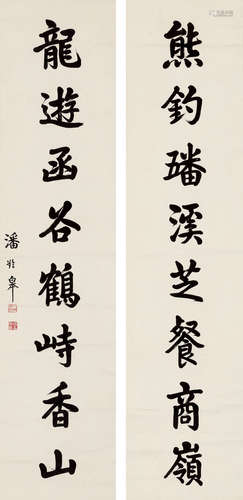 熊釣璠溪芝餐商嶺
龍遊函谷鶴峙香山
潘齡皋